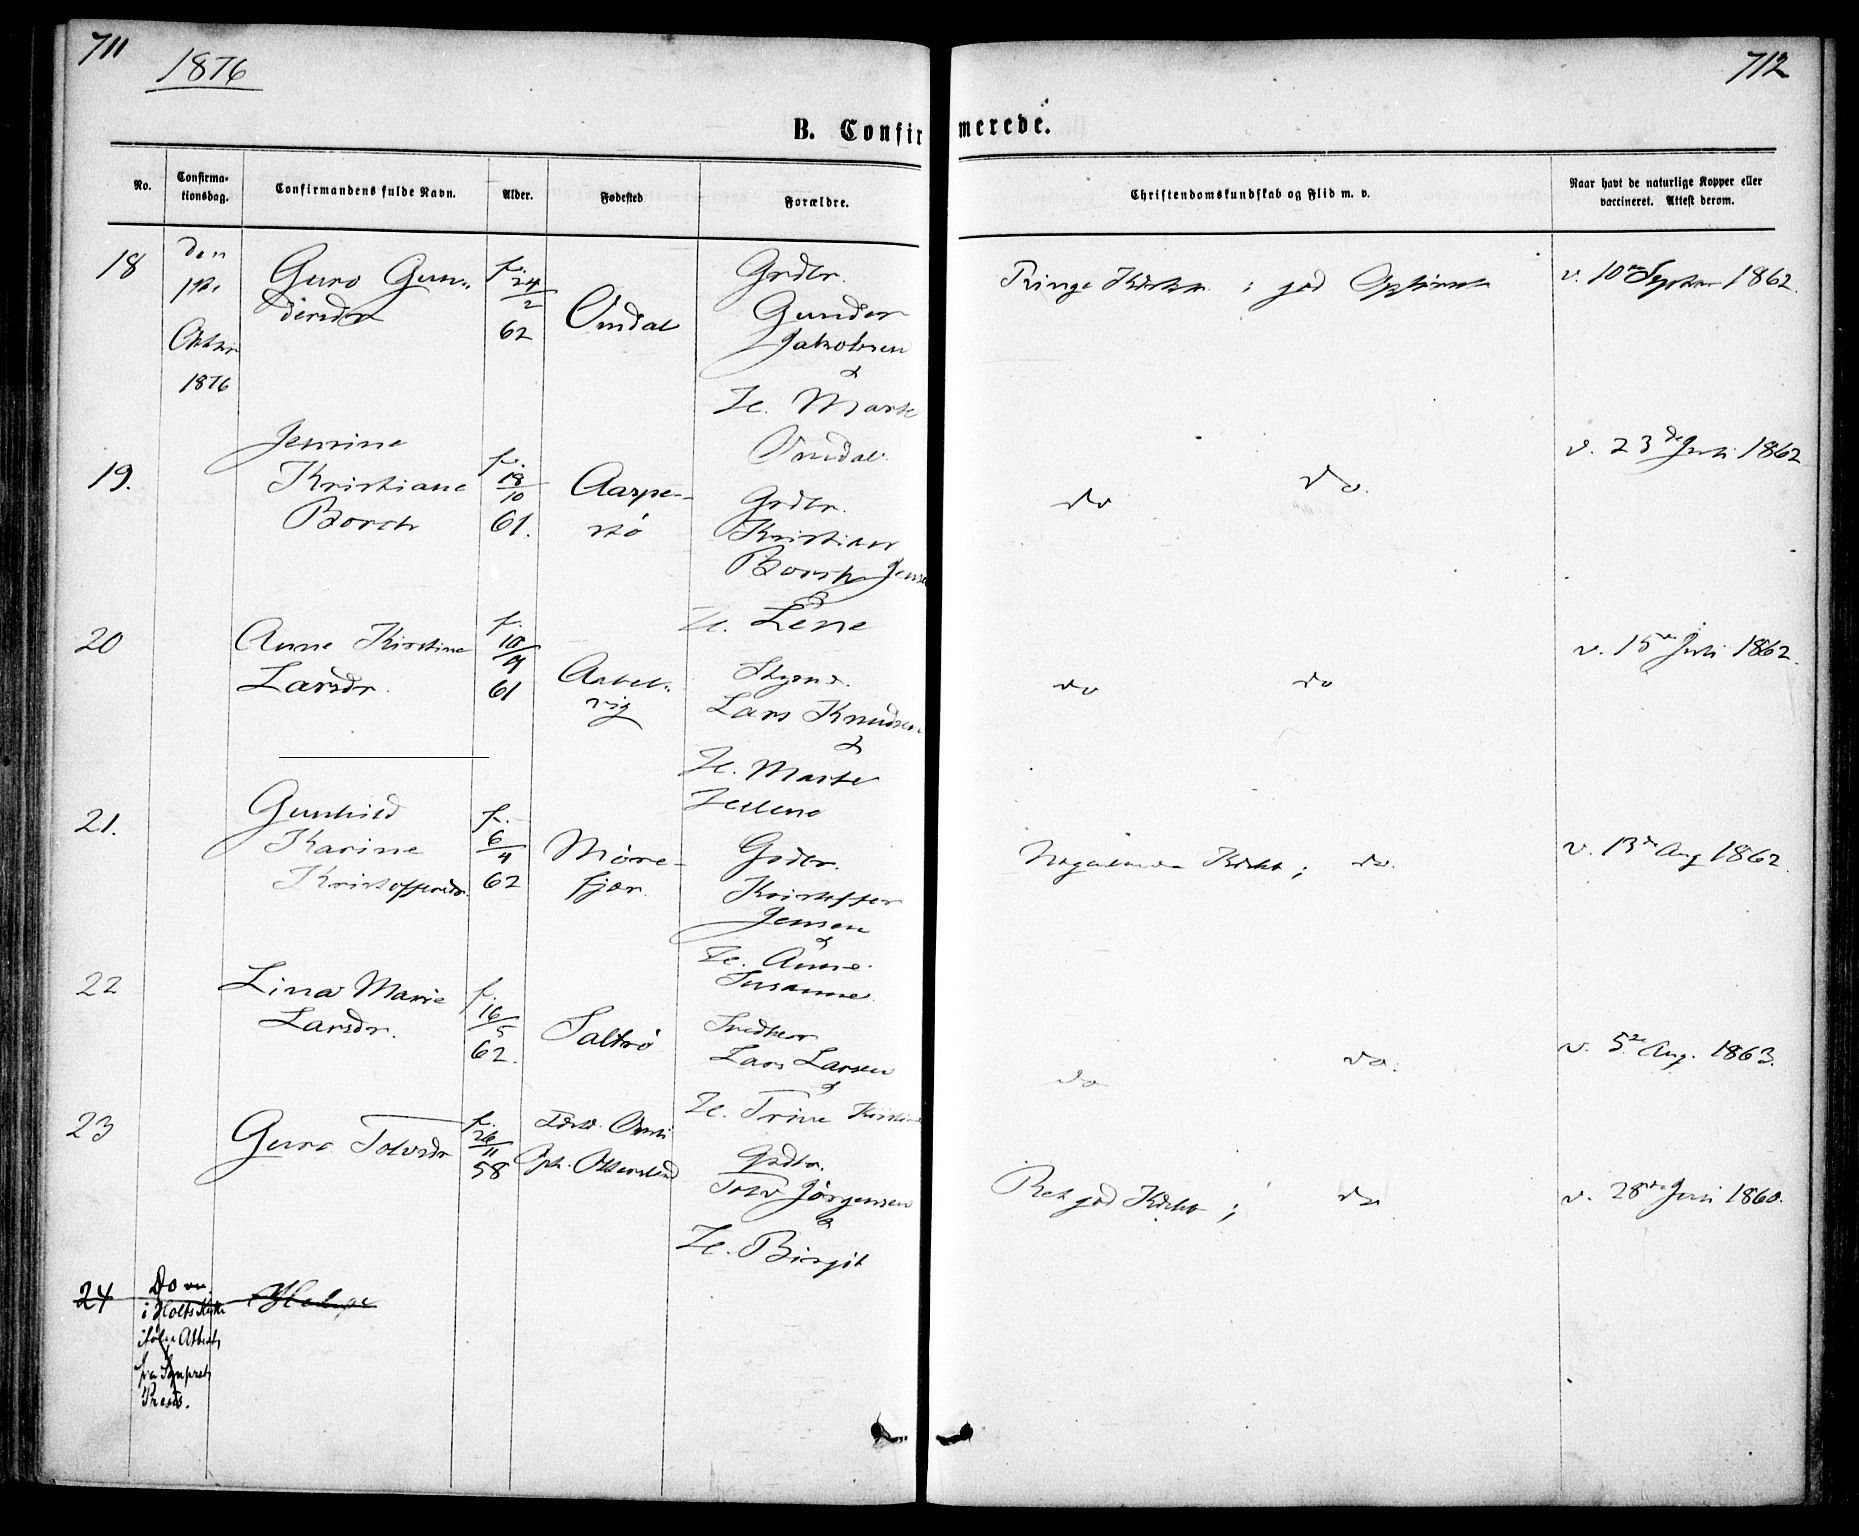 711
1876
712
B. Confirmerede.
No.
Confirma-
tionsdag.
Confirmandens fulde Navn.
Alder.
Fødested
Forældre.
Christendomskundskab og Flid m. v.
Naar havt de naturlige Kopper eller
vaccineret. Attest derom.
18
den
1ste
1876
Guro Gun-
dersdr
f. 24/2
62
Omdal
Grdbr.
Gunder
Jakobsen
&
H. Marte
Omdal.
Ringe ; god
v. 10de Septbr 1862.
19.
Jensine
Kristiane
Borch
f. 18/10
61.
Aaspe-
rød
Grdbr.
Kristian
Borch Jensen
&
H. Lene
do
do.
v. 23de Juli 1862
20
Anne Kirstine
Larsdr.
f. 10/9
61
vig
Lars Knudsen
&
H. Marte
Helene
do
do
v. 15de Juli 1862.
21.
Gunhild
Karine
Kristoffersdr.
f. 6/4
62
Møre-
fjær.
Grdbr.
Kristoffer
Jensen
&
H. Anne
Susanne.
; do.
v. 13de Aug 1862
22
Lina Marie
Larsdr.
f. 16/5
62.
Saltrø
Lars Larsen
&
H. Trine Kirstine
do
do.
v. 5te Aug. 1863.
23
Guro Tolvsdr
f. 26/11
58
Grdbr.
Tolv Jörgensen
&
H. Birgit
Ret god ; do
v. 28de Juli 1860.
24
Do
i Holts Kirke
ifølge Attest
fra
Præst.